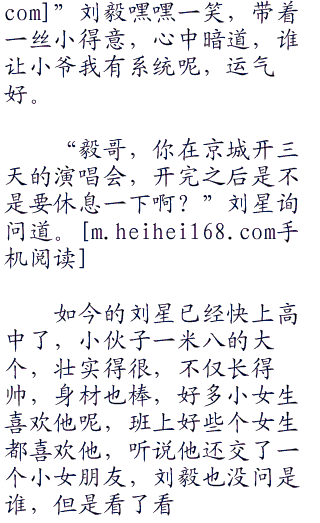 com]”刘毅嘿嘿一笑，带着
一丝小得意，心中暗道，谁
让小爷我有系统呢，运气
好。
“毅哥，你在京城开三
天的演唱会，开完之后是不
是要休息一下啊？”刘星询
问道。[m.heihei168.com手
机阅读]
如今的刘星已经快上高
中了，小伙子一米八的大
个，壮实得很，不仅长得
帅，身材也棒，好多小女生
喜欢他呢，班上好些个女生
都喜欢他，听说他还交了一
个小女朋友，刘毅也没问是
谁，但是看了看